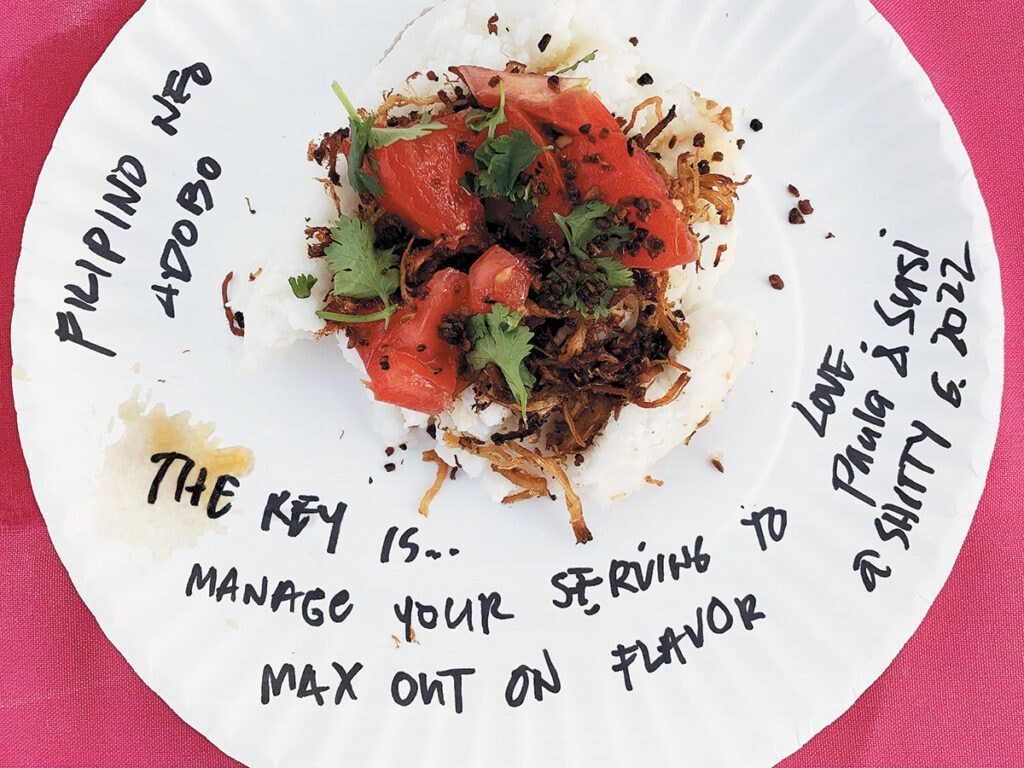 FILIPINO NEO
ADOBO
THE KEY IS...
MANAGE YOUR SERVING TO
MAX OUT ON FLAVOR
LOVE
Paula & Susi
@ SHITTY 6. 2022